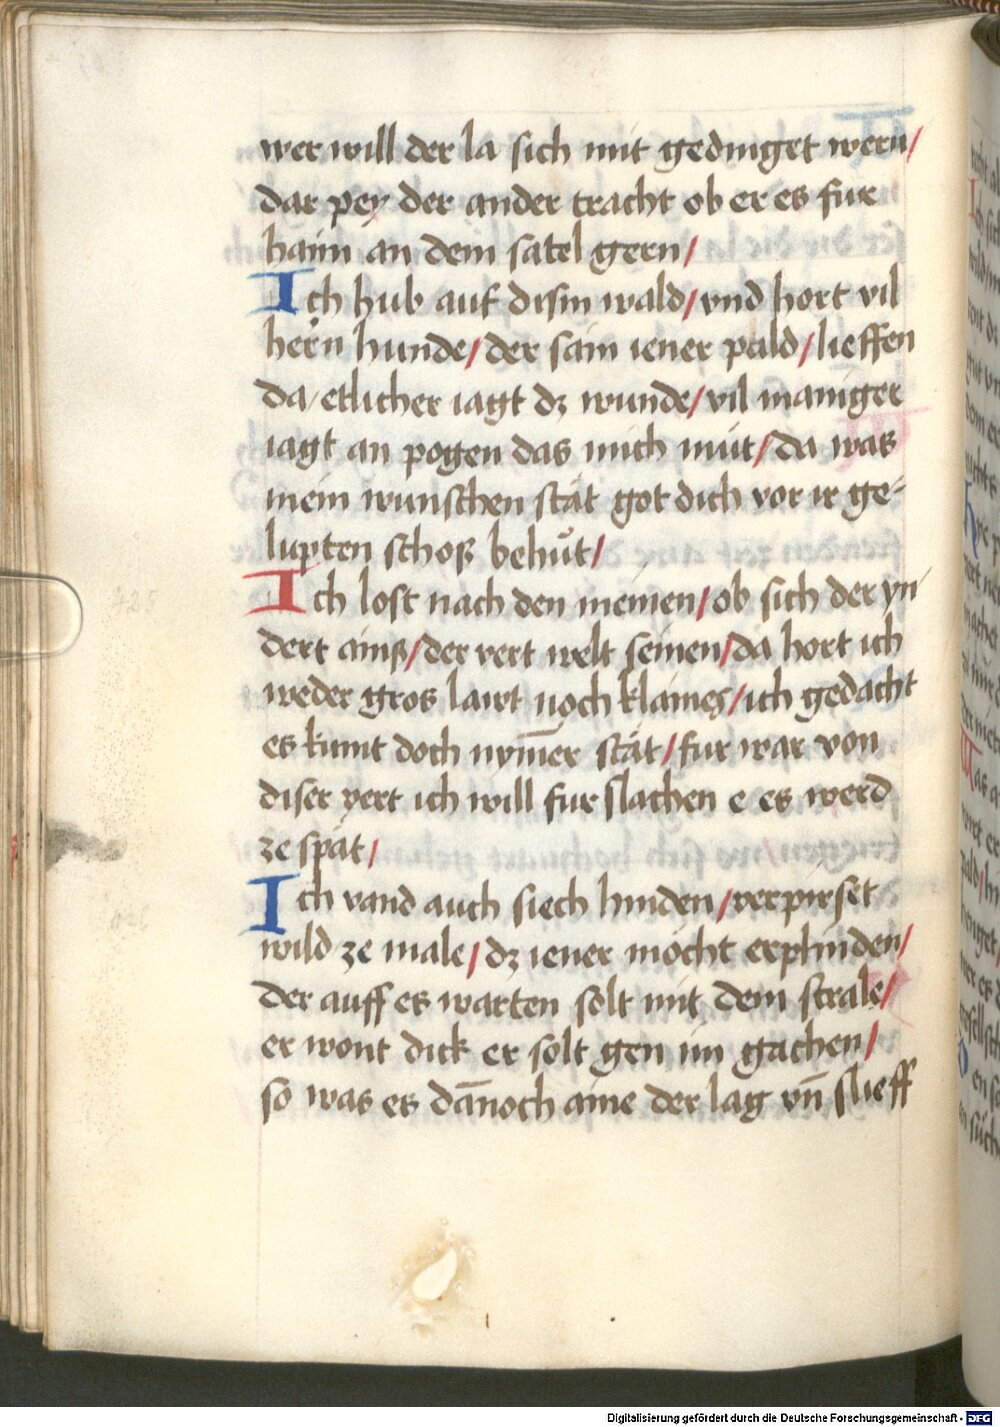 wer will der la sich mit gedinget wern/
dar pey der ander tracht ob er es fur
haim an dem satel gern/
Ich hub auf dism wald/ vnd hort vil
hern hunde/ der sam iener pald/ lieffen
da/ etlicher iagt dz wunde/ vil maniger
iagt an pogen das mich müt/ da was
mein wunschen stät got dich vor ir ge-
lupten schoß behüt/
Ich lost nach den meinen/ ob sich der yn
dert ainß/ der vert welt seinen/ da hort ich
weder gros lawt noch klaines/ ich gedacht
es kumt doch nym̄er stät/ fur war von
diser vert ich will fur slachen e es werd
ze spät/
Ich vand auch siech hinden/ verpirset
wild ze male/ dz iener möcht erphinden/
der auff es warten solt mit dem strale/
er wont dick er solt gen im gachen/
so was es dan̄och aine der lag vn̄ slieff
425
426
Digitalisierung gefördert durch die Deutsche Forschungsgemeinschaft - DFG